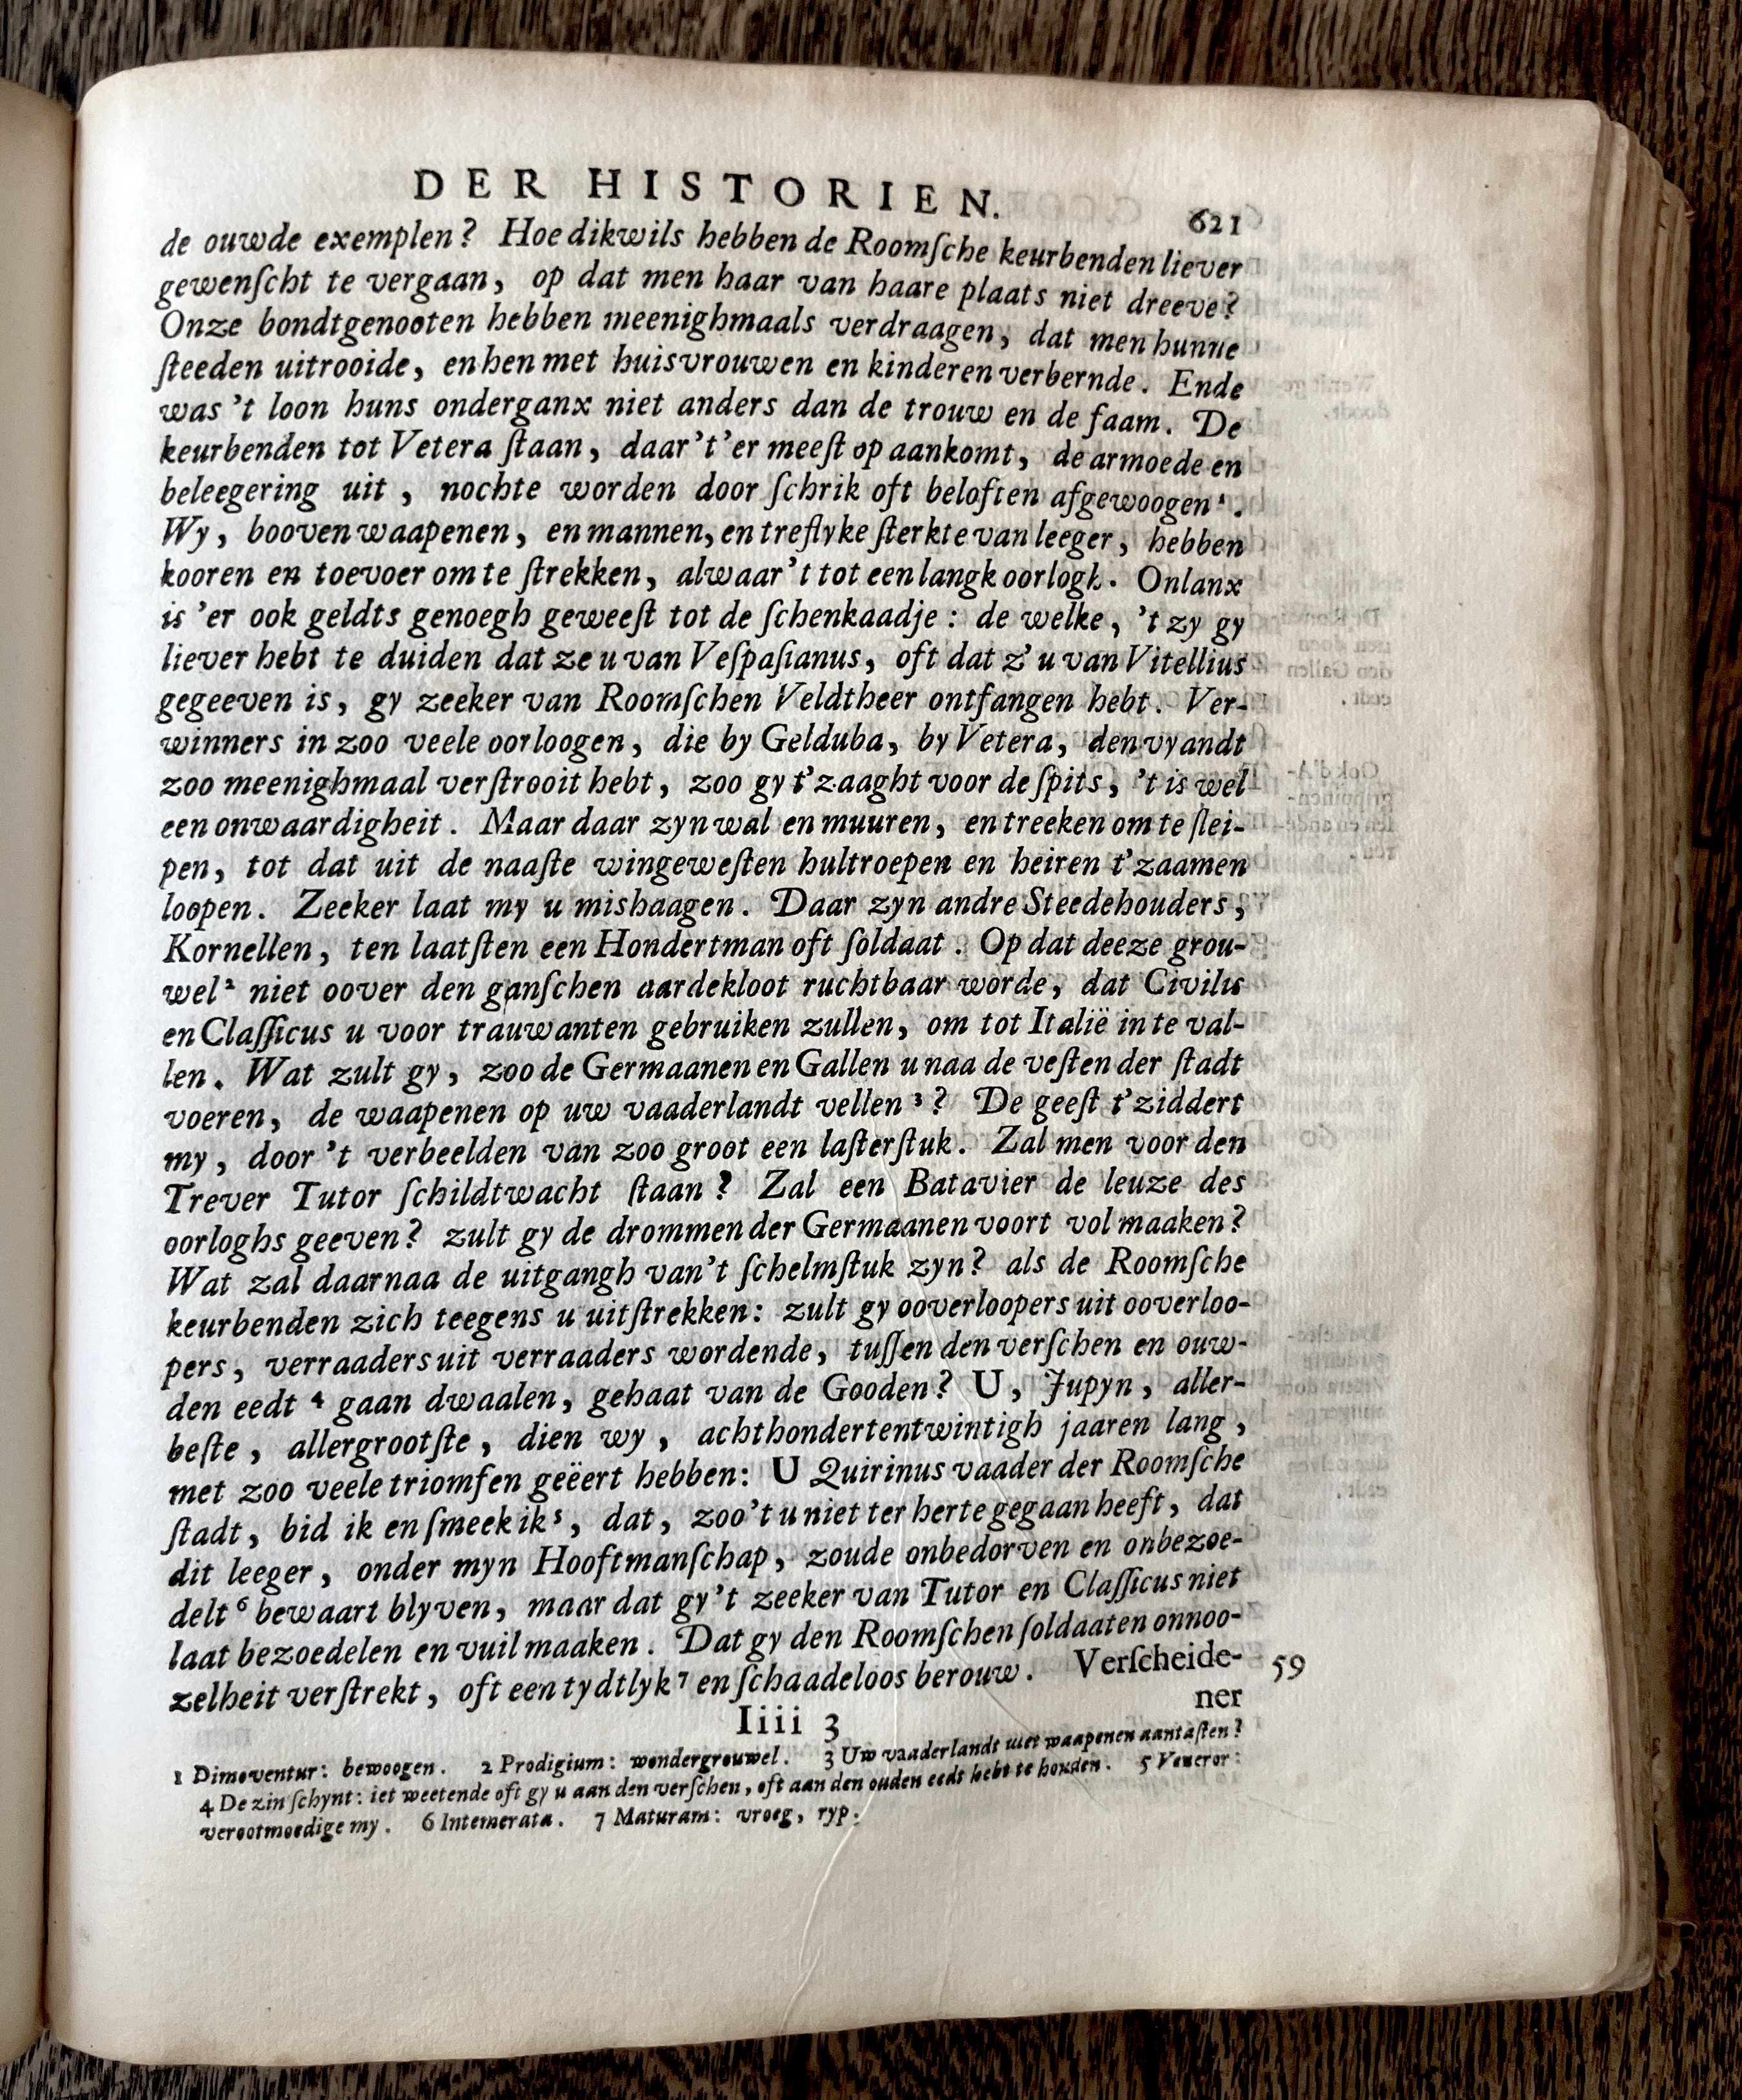 DER HISTORIEN.
621
de ouwde exemplen? Hoe dikwils hebben de Roomſche keurbenden liever
gewenſcht te vergaan, op dat men haar van haare plaats niet dreeve?
Onze bondtgenooten hebben meenighmaals verdraagen, dat men hunne
ſteeden uitrooide, en hen met huisvrouwen en kinderen verbernde. Ende
was 't loon huns onderganx niet anders dan de trouw en de faam. De
keurbenden tot Vetera ſtaan, daar 't 'er meeſt op aankomt, de armoede en
beleegering uit, nochte worden door ſchrik oft beloften afgewoogen¹.
Wy, booven waapenen, en mannen, en treflyke ſterkte van leeger, hebben
kooren en toevoer om te ſtrekken, alwaar 't tot een langk oorlogh. Onlanx
is 'er ook geldts genoegh geweeſt tot de ſchenkaadje: de welke, 't zy gy
liever hebt te duiden dat ze u van Veſpaſianus, oft dat z' u van Vitellius
gegeeven is, gy zeeker van Roomſchen Veldtheer ontfangen hebt. Ver-
winners in zoo veele oorloogen, die by Gelduba, by Vetera, den vyandt
zoo meenighmaal verſtrooit hebt, zoo gy t'zaaght voor de ſpits, 't is wel
een onwaardigheit. Maar daar zyn wal en muuren, en treeken om te ſlei-
pen, tot dat uit de naaſte wingeweſten hultroepen en heiren t'zaamen
loopen. Zeeker laat my u mishaagen. Daar zyn andre Steedehouders,
Kornellen, ten laatſten een Hondertman oft ſoldaat. Op dat deeze grou-
wel² niet oover den ganſchen aardekloot ruchtbaar worde, dat Civilis
en Claſſicus u voor trauwanten gebruiken zullen, om tot Italië in te val-
len. Wat zult gy, zoo de Germaanen en Gallen u naa de veſten der ſtadt
voeren, de waapenen op uw vaaderlandt vellen³? De geeſt t'ziddert
my, door 't verbeelden van zoo groot een laſterſtuk. Zal men voor den
Trever Tutor ſchildtwacht ſtaan? Zal een Batavier de leuze des
oorloghs geeven? zult gy de drommen der Germaanen voort vol maaken?
Wat zal daarnaa de uitgangh van 't ſchelmſtuk zyn? als de Roomſche
keurbenden zich teegens u uitſtrekken: zult gy ooverloopers uit ooverloo-
pers, verraaders uit verraaders wordende, tuſſen den verſchen en ouw-
den eedt⁴ gaan dwaalen, gehaat van de Gooden? U, Jupyn, aller-
beſte, allergrootſte, dien wy, achthondertentwintigh jaaren lang,
met zoo veele triomfen geëert hebben: U Quirinus vaader der Roomſche
ſtadt, bid ik en ſmeek ik⁵, dat, zoo 't u niet ter herte gegaan heeft, dat
dit leeger, onder myn Hooftmanſchap, zoude onbedorven en onbezoe-
delt⁶ bewaart blyven, maar dat gy 't zeeker van Tutor en Claſſicus niet
laat bezoedelen en vuil maaken. Dat gy den Roomſchen ſoldaaten onnoo-
zelheit verſtrekt, oft een tydtlyk⁷ en ſchaadeloos berouw. Verſcheide-
59
ner
Iiii 3
1 Dimoventur: bewoogen. 2 Prodigium: wondergrouwel. 3 Uw vaaderlandt met waapenen aantaſten?
4 De zin ſchynt: iet weetende oft gy u aan den verſchen, oft aan den ouden eedt hebt te houden. 5 Veneror:
verootmoedige my. 6 Intemerata. 7 Maturam: vroeg, ryp.